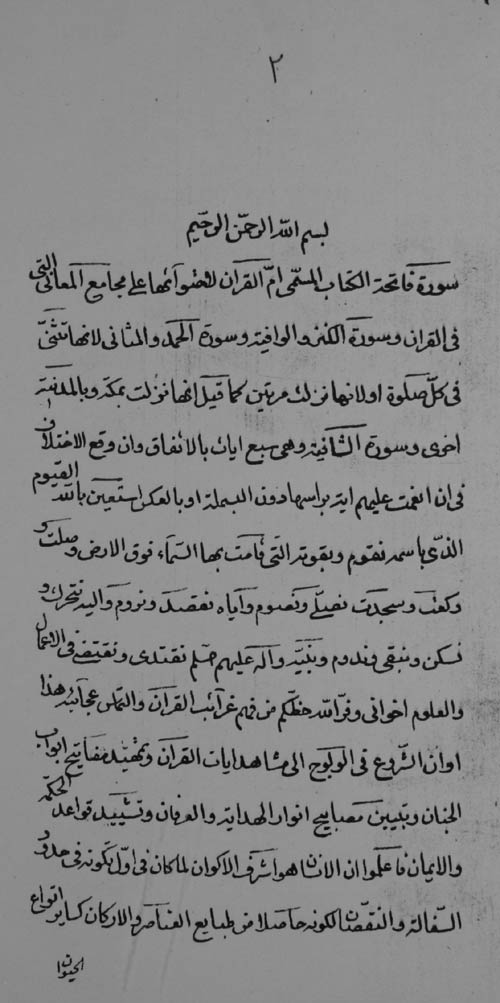 ٢
بسم الله الرحمن الرحيم
سورة فاتحة الكتاب المسمى ام القران لاحتوائها على مجامع المعانى التى
فى القران وسورة الكنز والوافية وسورة الحمد والمثانى لانها تثنى
فى كل صلوة اولانها نزلت مرتين كما قيل انها نزلت بمكة وبالمدينة
اخرى وسورة الشافية وهى سبع ايات بالاتفاق وان وقع الاختلاف
فى ان انعمت عليهم اية براسها دون البسملة او بالعكس استعين بالله القيوم
الذى باسمه نقوم وبقوته التى قامت بها السماء فوق الارض وصلت و
ركعت وسجدت نصلى ونصوم واياه نقصد ونروم واليه نتحرك و
نسكن ونبقى وندوم وبنبيه وآله عليهم نقتدى ونقتفى فى الاعمال
والعلوم اخوانى وفر الله حظكم من فهم غرائب القران والتماس عجائبه هذا
اوان الشروع فى الولوج الى مشاهد ايات القران وتمهيد مفاتيح ابواب
الجنان وتبيين مصابيح انوار الهداية والعرفان وتشييد قواعد الحكمة
والايمان فاعلموا ان الانسان هو اشرف الاكوان لما كان فى اول تكونه فى حدود
السفالة والنقصان لكونه حاصلا من طبايع العناصر والاركان كساير انواع
الحيوان